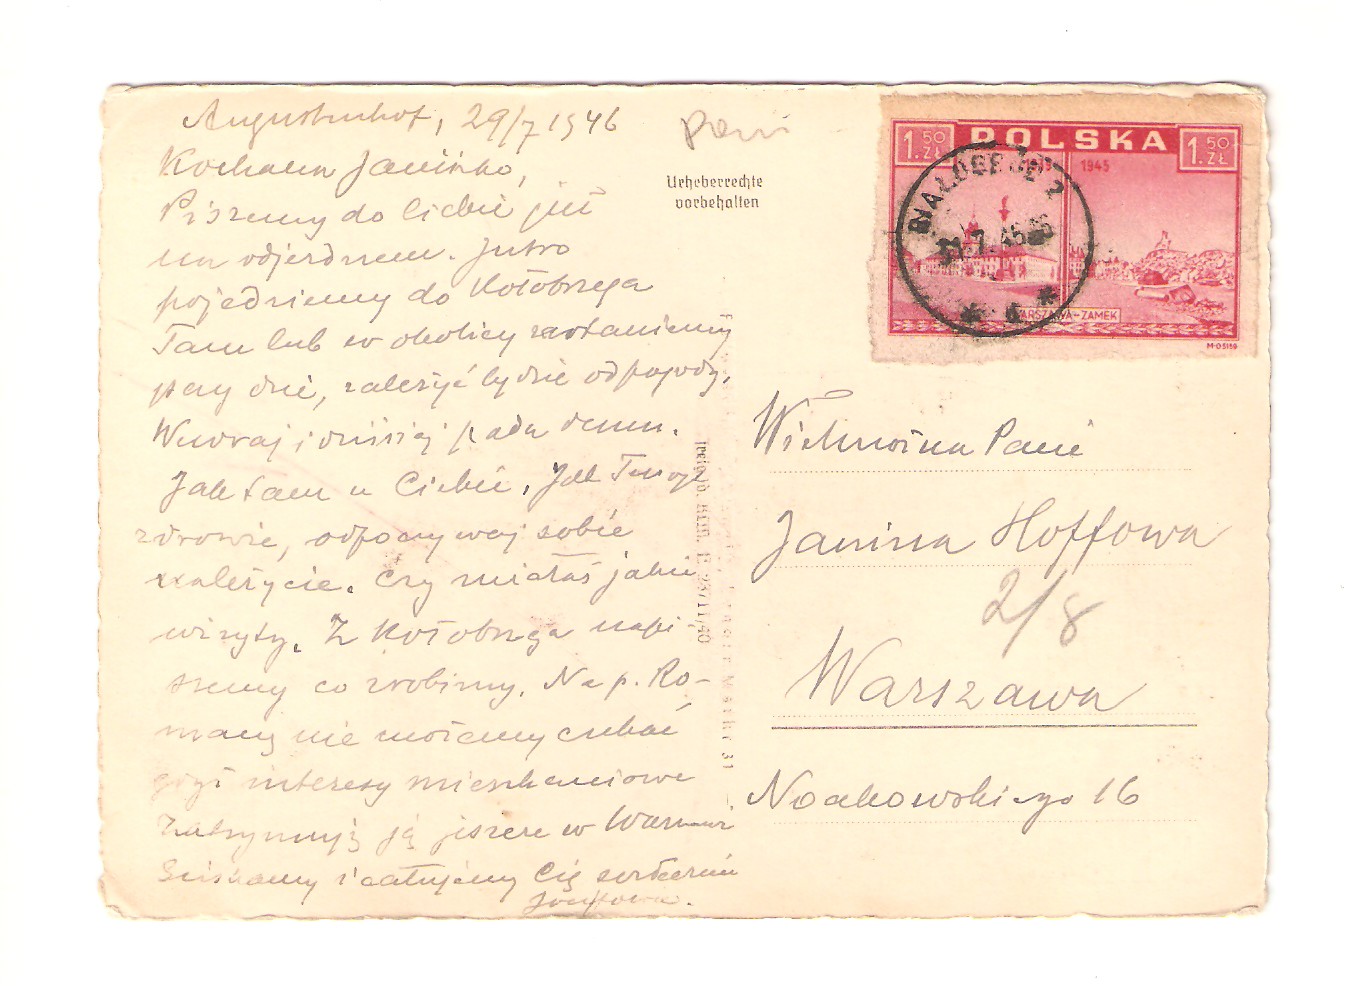 Augustenhof, 29/7 1946
Kochana Janinko,
Piszemy do Ciebie już
na odjezdnem. Jutro
pojedziemy do Kołobrzega
Tam lub w okolicy zostaniemy
parę dni, zależeć będzie od pogody,
Wczoraj i dzisiaj pada deszcz.
Jak tam u Ciebie, Jak Twoje
zdrowie, odpoczywaj sobie
należycie. Czy miałaś jakieś
wizyty. Z Kołobrzega napi-
szemy co zrobimy. Na p. Ro-
manę nie możemy czekać
gdyż interesy mieszkaniowe
zatrzymują ją jeszcze w Warszawie
Ściskamy i całujemy Cię serdecznie
Urheberrechte
vorbehalten
1.50 ZŁ
POLSKA
1.50 ZŁ
1945
WARSZAWA-ZAMEK
M·05159
BIAŁOGRODE 2
31.7.46
Wielmożna Pani
Janina Hoffowa
2/8
Warszawa
Noakowskiego 16